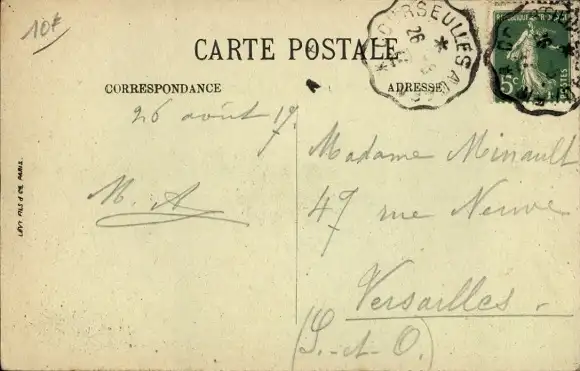 10€
CARTE POSTALE
CORRESPONDANCE
ADRESSE
26 août 17.
M. A
Madame Minault
47 rue Neuve
Versailles.
(S.-et-O.)
LÉVY FILS & CIE PARIS.
COURSEULLES
26
REPUBLIQUE
5c
POSTES